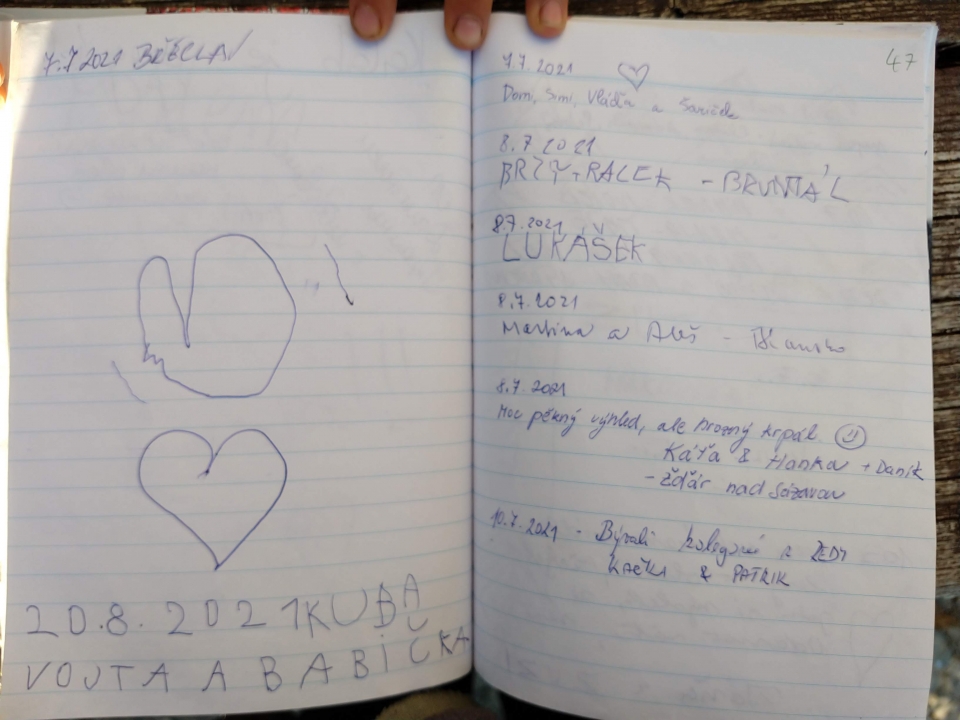 7.7 2021 BŘECLAV
20.8. 2021 KUBA
VOJTA A BABIČKA
47
7.7.2021
Domi, Simi, Vláďa a
8.7 2021
- BRUNTÁL
8.7.2021
LUKÁŠEK
8.7.2021
Martina a Aleš - Blansko
8.7.2021
Moc pěkný výhled, ale hrozný krpál
Káťa & Hanka + Daník
- Žďár nad Sázavou
10.7.2021 - Bývalí kolegové z
KAČKA & PATRIK